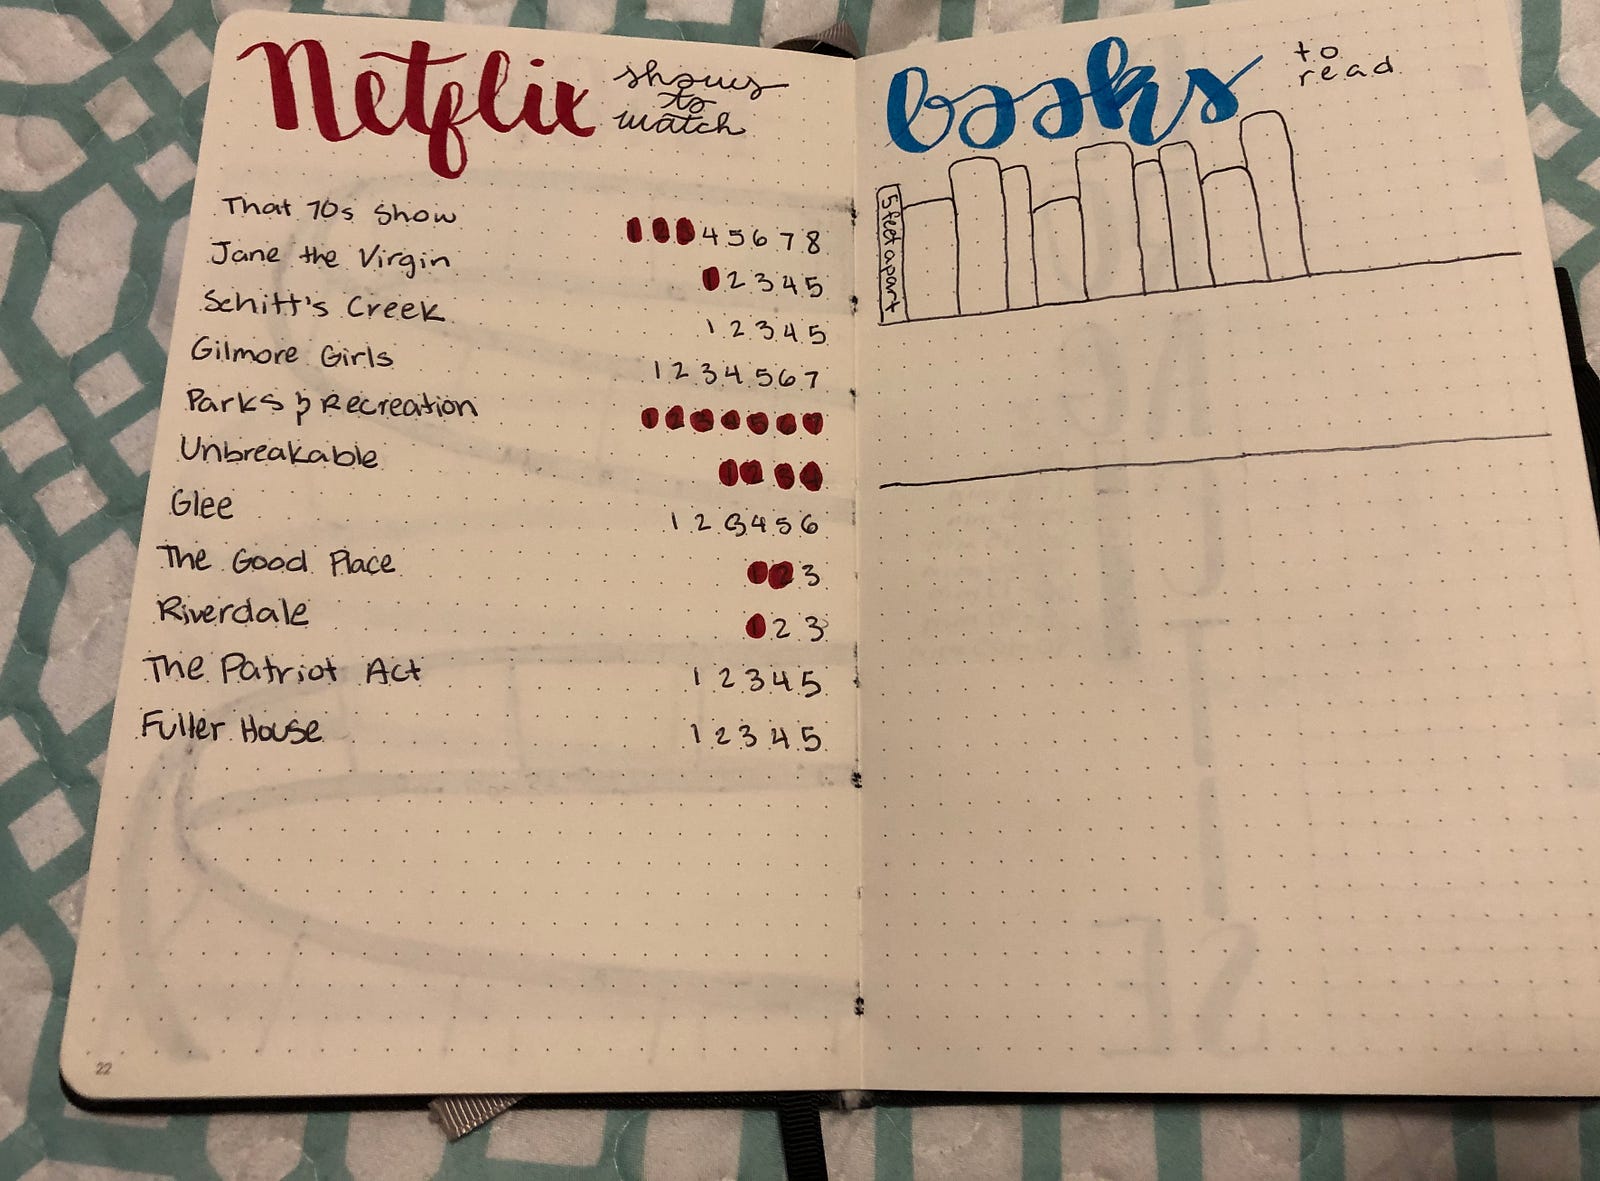 Netflix shows
to
watch
That 70s Show 1 2 3 4 5 6 7 8
Jane the Virgin 1 2 3 4 5
Schitt's Creek 1 2 3 4 5
Gilmore Girls 1 2 3 4 5 6 7
Parks & Recreation 1 2 3 4 5 6 7
Unbreakable 1 2 3 4
Glee 1 2 3 4 5 6
The Good Place 1 2 3
Riverdale 1 2 3
The Patriot Act 1 2 3 4 5
Fuller House 1 2 3 4 5
22
books to
read
5 feet apart